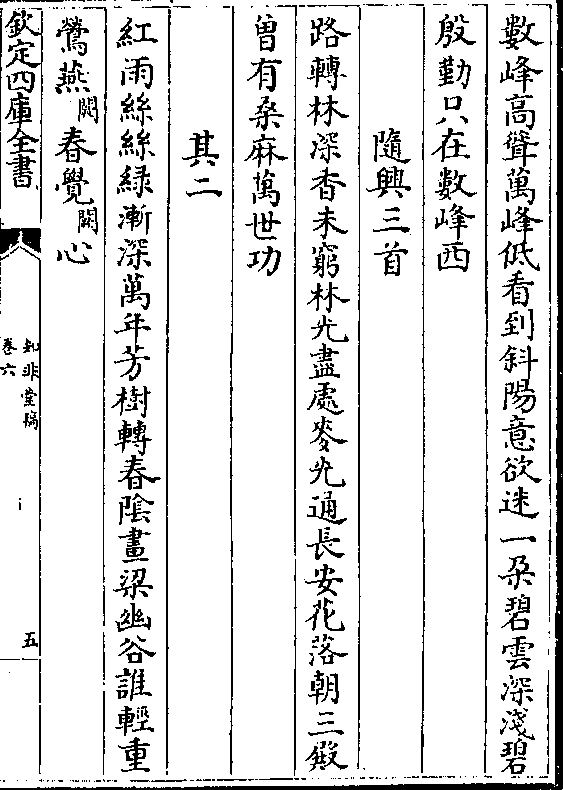 數峰高聳萬峰低看到斜陽意欲迷一朶碧雲深淺碧
殷勤只在數峰西
隨興三首
路轉林深香未窮林光盡處麥光通長安花落朝三殿
曽有桑麻萬世功
其二
紅雨絲絲緑漸深萬年芳樹轉春陰畫梁幽谷誰輕重
鶯燕闕春覺闕心
欽定四庫全書
知非堂稿
卷六
五